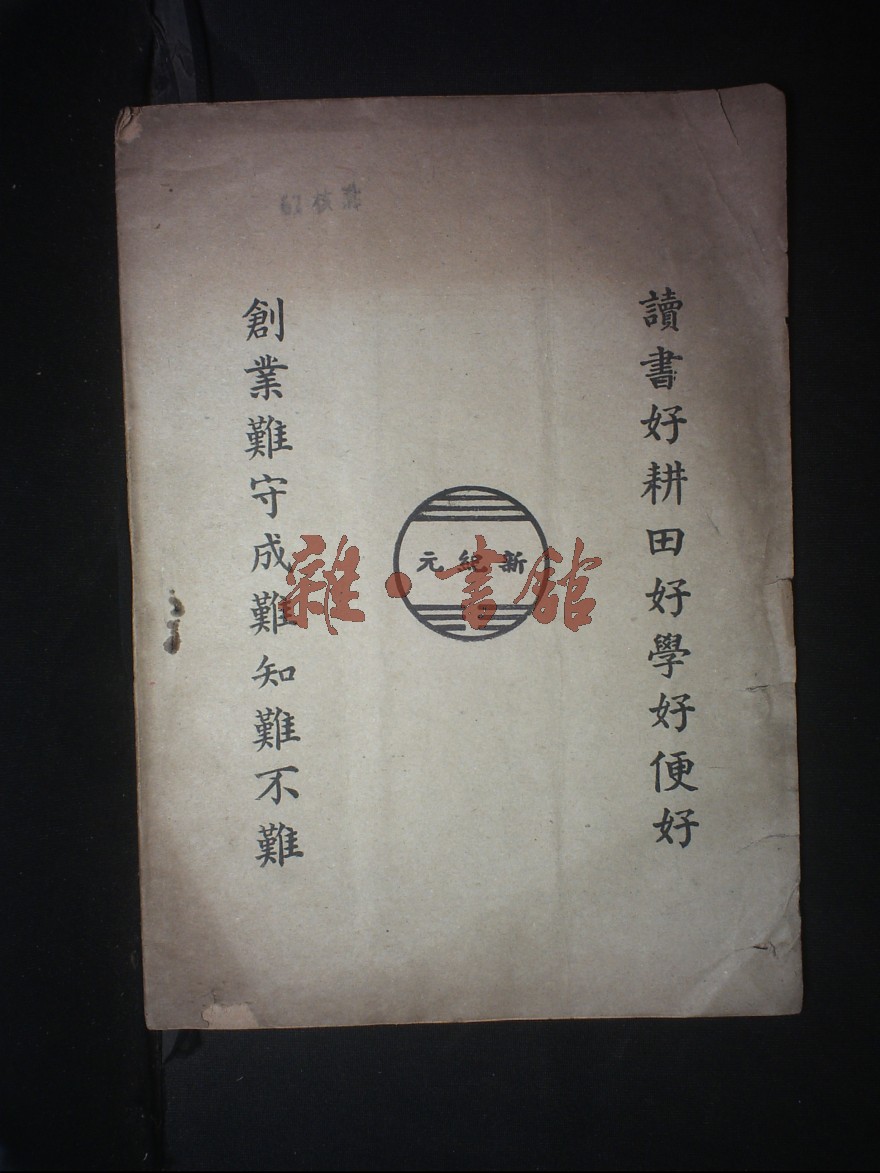 讀書好耕田好學好便好
新紀元
創業難守成難知難不難
雜·書館